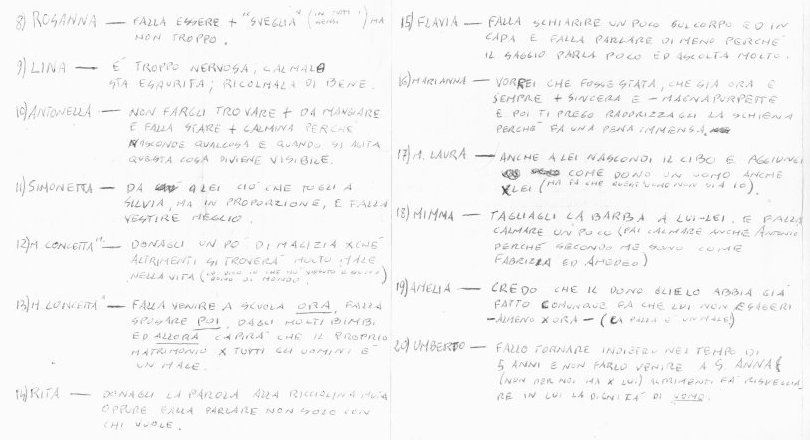 8) ROSANNA — FALLA ESSERE + "SVEGLIA" (IN TUTTI I SENSI) MA
NON TROPPO.
9) LINA — È TROPPO NERVOSA, CALMALA
STA ESAURITA; RICOLMALA DI BENE.
10) ANTONELLA — NON FARGLI TROVARE + DA MANGIARE
E FALLA STARE + CALMINA PERCHÉ
NASCONDE QUALCOSA E QUANDO SI AGITA
QUESTA COSA DIVIENE VISIBILE.
11) SIMONETTA — DA A LEI CIÒ CHE TOGLI A
SILVIA, MA IN PROPORZIONE, E FALLA
VESTIRE MEGLIO.
12) M. CONCETTA — DONAGLI UN PÒ DI MALIZIA XCHÉ
ALTRIMENTI SI TROVERÀ MOLTO MALE
NELLA VITA
13) M. CONCETTA — FALLA VENIRE A SCUOLA ORA, FALLA
SPOSARE POI, DAGLI MOLTI BIMBI
ED ALLORA CAPIRÀ CHE IL PROPRIO
MATRIMONIO X TUTTI GLI UOMINI È
UN MALE.
14) RITA — DONAGLI LA PAROLA ALLA RICCIOLINA MUTA
OPPURE FALLA PARLARE NON SOLO CON
CHI VUOLE.
15) FLAVIA — FALLA SCHIARIRE UN POCO SUL CORPO ED IN
CAPA E FALLA PARLARE DI MENO PERCHÉ
IL SAGGIO PARLA POCO ED ASCOLTA MOLTO.
16) MARIANNA — VORREI CHE FOSSE STATA, CHE GIÀ ORA E
SEMPRE + SINCERA E - MAGNAPURPETTE
E POI TI PREGO RADDRIZZAGLI LA SCHIENA
PERCHÉ FA UNA PENA IMMENSA.
17) M. LAURA — ANCHE A LEI NASCONDI IL CIBO E AGGIUNGI
COME DONO UN UOMO ANCHE
X LEI (MA FÀ CHE QUEST'UOMO NON SIA IO).
18) MIMMA — TAGLIAGLI LA BARBA A LUI-LEI. E FALLA
CALMARE UN POCO (FAI CALMARE ANCHE ANTONIO
PERCHÉ SECONDO ME SONO COME
FABRIZIA ED AMEDEO)
19) AMELIA — CREDO CHE IL DONO GLIELO ABBIA GIÀ
FATTO COMUNQUE FÀ CHE LUI NON ESAGERI
-ALMENO X ORA- (LA PALLA È UN MALE)
20) UMBERTO — FALLO TORNARE INDIETRO NEL TEMPO DI
5 ANNI E NON FARLO VENIRE A S. ANNA
(NON PER NOI MA X LUI) ALTRIMENTI FÀ RISVEGLIA-
RE IN LUI LA DIGNITÀ DI UOMO.